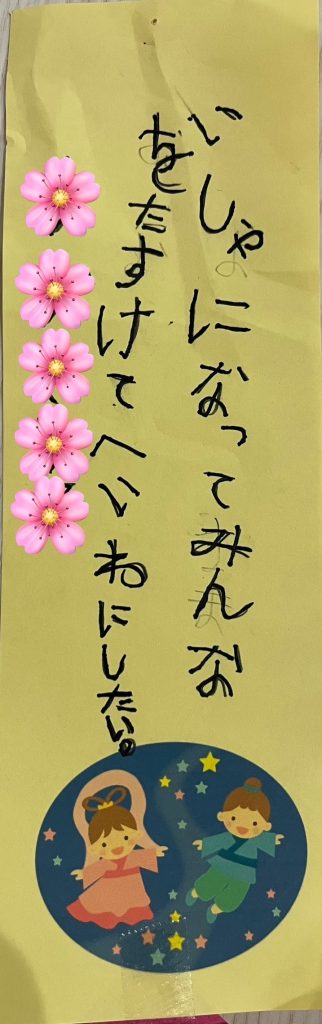 いしゃになってみんな
をたすけてへいわにしたい。